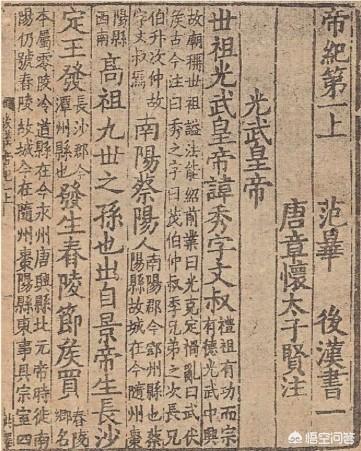 帝紀第一上 范曄 後漢書一
唐章懷太子賢注
光武皇帝
世祖光武皇帝諱秀字文叔 禮祖有功而宗有德光武中興
故廟稱世祖謚法能紹前業曰光克定禍亂曰武伏侯古今注曰秀之字曰茂伯仲叔季兄弟之次長兄
伯升次仲故字文叔焉 南陽蔡陽人 南陽郡今鄧州縣也蔡陽縣故城在今隨州棗
陽縣西南 高祖九世之孫也出自景帝生長沙
定王發 長沙郡今潭州縣也 發生舂陵節侯買 舂陵鄉名
本屬零陵泠道縣在今永州唐興縣北元帝時徙南陽仍號舂陵故城今在隨州棗陽縣東事具宗室四
悟空问答